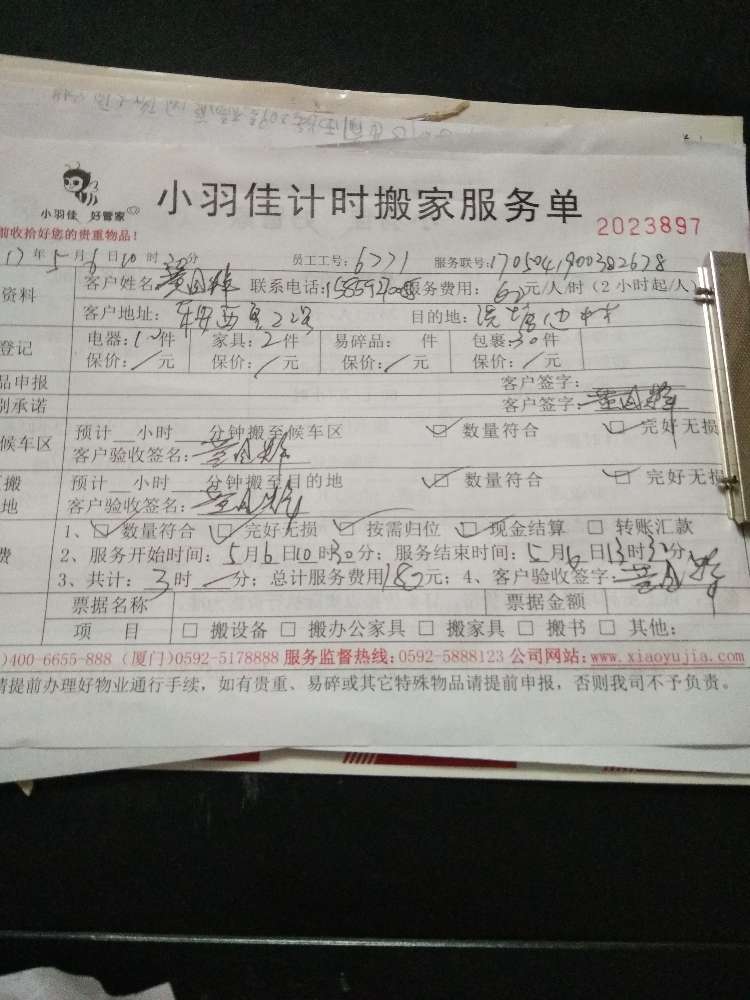 小羽佳 好管家
小羽佳计时搬家服务单
2023897
前收拾好您的贵重物品!
17年5月6日10时30分 员工工号:6771 服务联号:1705041900382678
资料 客户姓名: 联系电话: 服务费用:60元/人/时(2小时起/人)
客户地址: 目的地:
登记 电器: 件 家具:2件 易碎品: 件 包裹:30件
保价:/元 保价:/元 保价:/元 保价:/元
品申报 客户签字:
别承诺 客户签字:
候车区 预计__小时__分钟搬至候车区 ☑ 数量符合 ☑ 完好无损
客户验收签名:
搬 预计__小时__分钟搬至目的地 ☑ 数量符合 ☑ 完好无损
地 客户验收签名:
1、☑ 数量符合 ☑ 完好无损 ☑ 按需归位 ☑ 现金结算 □ 转账汇款
费 2、服务开始时间:5月6日10时30分; 服务结束时间:5月6日13时30分
3、共计:3时 分; 总计服务费用180元; 4、客户验收签字:
票据名称 票据金额
项 目 □ 搬设备 □ 搬办公家具 □ 搬家具 □ 搬书 □ 其他:
)400-6655-888 (厦门)0592-5178888 服务监督热线:0592-5888123 公司网站:www.xiaoyujia.com
请提前办理好物业通行手续,如有贵重、易碎或其它特殊物品请提前申报,否则我司不予负责。